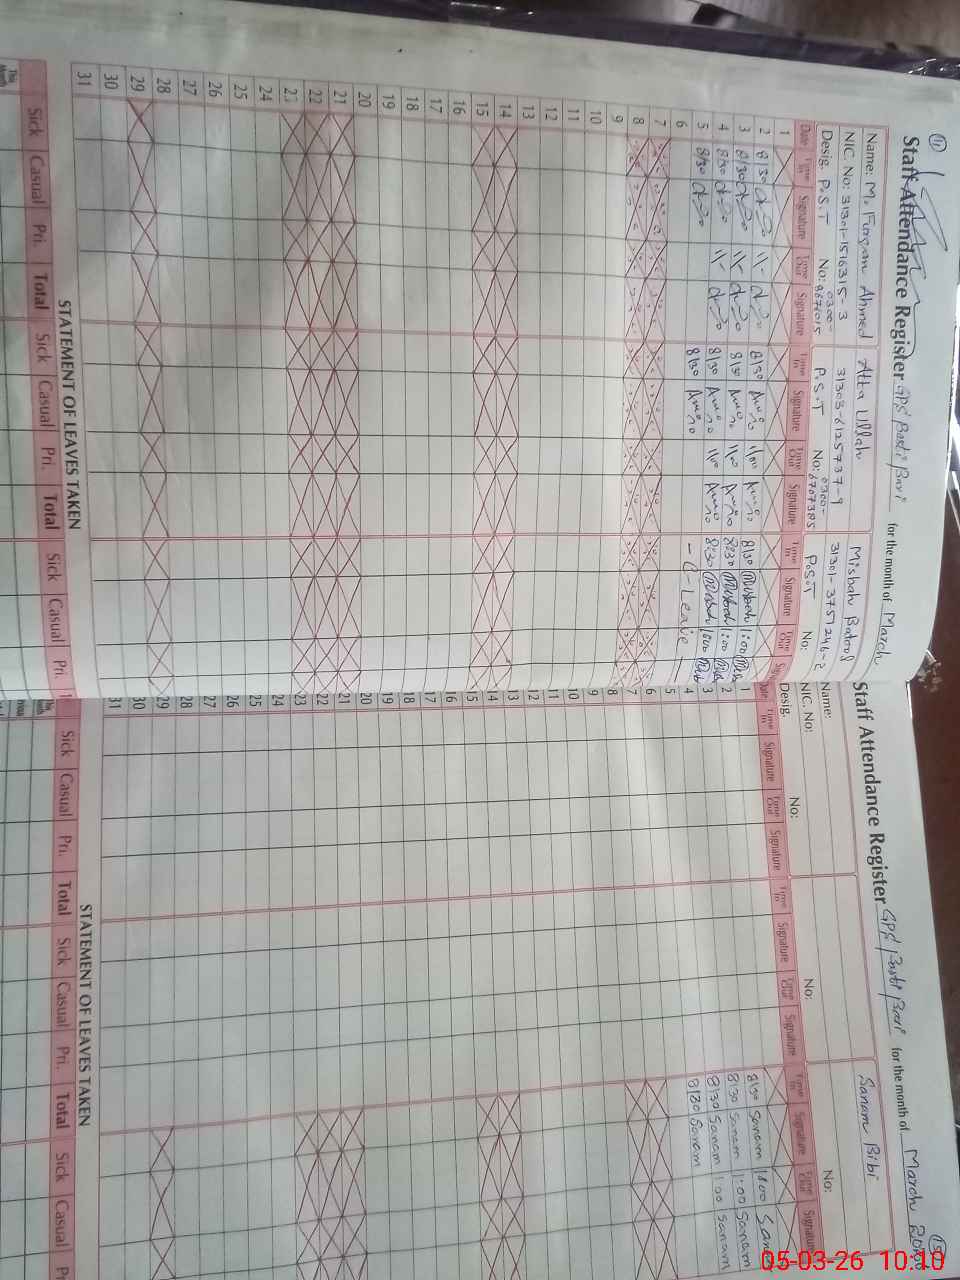 11
Staff Attendance Register GPS Basti Bari for the month of March
Name: M. Furqan Ahmed Atta Ullah Misbah Batool
NIC. No: 31301-1516315-3 31303-6125737-9 31301-3751246-2
Desig. P.S.T No: 0300- P.S.T No: 0300-6707385 P.S.T No:
Date Time In Signature Time Out Signature Time In Signature Time Out Signature Time In Signature Time Out
1
2 8/30 8/30 1/00 8/30 Misbah 1:00
3 8/30 8/30 1/00 8:30 Misbah 1:00
4 8/30 8/30 1/00 8:30 Misbah 1:00
5 8/30 8/30 - C - Leave -
6
7
8
9
10
11
12
13
14
15
16
17
18
19
20
21
22
23
24
25
26
27
28
29
30
31
STATEMENT OF LEAVES TAKEN
Sick Casual Pri. Total Sick Casual Pri. Total Sick Casual Pri.
This Month
Staff Attendance Register GPS Basti Bari for the month of March
Name: Sanam Bibi
NIC. No:
Desig. No: No: No:
Date Time In Signature Time Out Signature Time In Signature Time Out Signature Time In Signature Time Out Signature
1
2 8/30 Sanam 1:00
3 8/30 Sanam 1:00 Sanam
4 8/30 Sanam 1:00 Sanam
5 8/30 Sanam
6
7
8
9
10
11
12
13
14
15
16
17
18
19
20
21
22
23
24
25
26
27
28
29
30
31
STATEMENT OF LEAVES TAKEN
Sick Casual Pri. Total Sick Casual Pri. Total Sick Casual
This Month
05-03-26 10:10